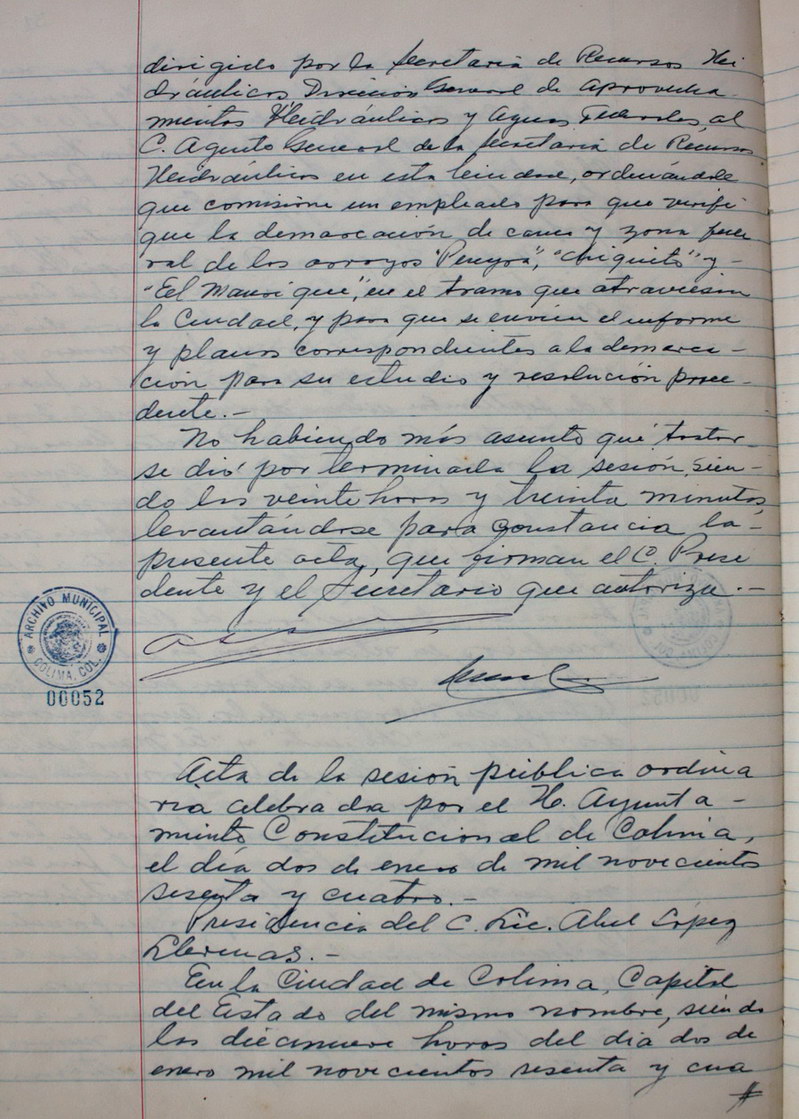 dirigido por la Secretaría de Recursos Hi
dráulicos Dirección General de Aprovecha-
mientos Hidráulicos y Aguas Federales, al
C. Agente General de la Secretaría de Recursos
Hidráulicos en esta Ciudad, ordenándole
que comisione un empleado para que verifi
que la demarcación de cauce y zona fede
ral de los arroyos "Pereyra", "Chiquito" y -
"El Manrique", en el tramo que atraviesan
la Ciudad, y para que se envíen el informe
y planos correspondientes a la demarca-
ción para su estudio y resolución proce-
dente.-
No habiendo más asunto que tratar
se dió por terminada la sesión, sien-
do las veinte horas y treinta minutos,
levantándose para constancia la-
presente acta, que firman el C. Presi
dente y el Secretario que autoriza.-
ARCHIVO MUNICIPAL
COLIMA, COL.
00052
Acta de la sesión pública ordina
ria celebrada por el H. Ayunta-
miento Constitucional de Colima,
el día dos de enero de mil novecientos
sesenta y cuatro.-
Presidencia del C. Lic. Abel López
Llerenas.-
En la Ciudad de Colima, Capital
del Estado del mismo nombre, siendo
las diecinueve horas del día dos de
enero mil novecientos sesenta y cua
#